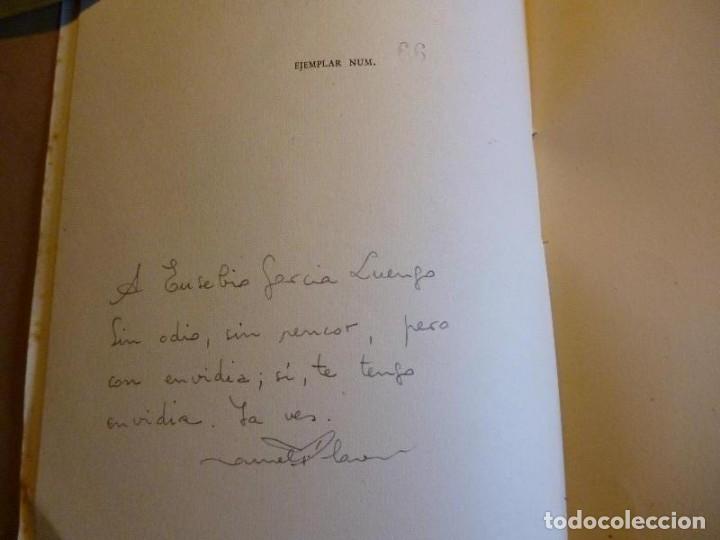 EJEMPLAR NUM. 66
A Eusebio Garcia Luengo
Sin odio, sin rencor, pero
con envidia; sí, te tengo
envidia. Ya ves.
todocoleccion
todocoleccion.net